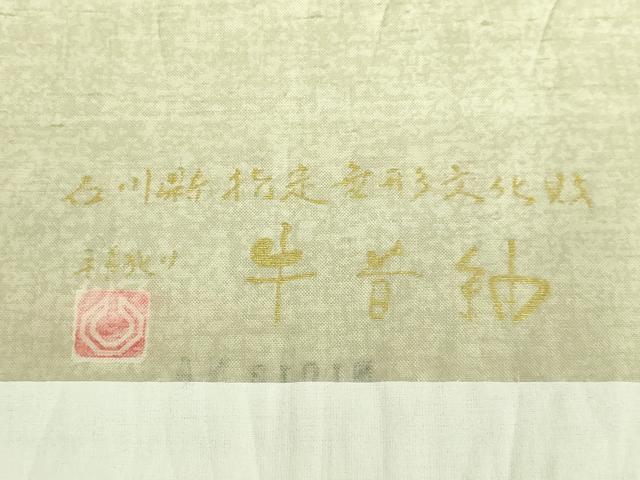 石川縣指定無形文化財
手機織り
牛首紬